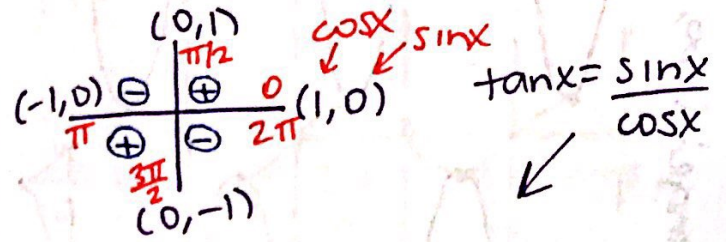 (0,1)
π/2
cosx
sinx
(-1,0) ⊖ ⊕ 0 (1,0)
π ⊕ ⊖ 2π
3π/2
(0,-1)
tanx = sinx/cosx